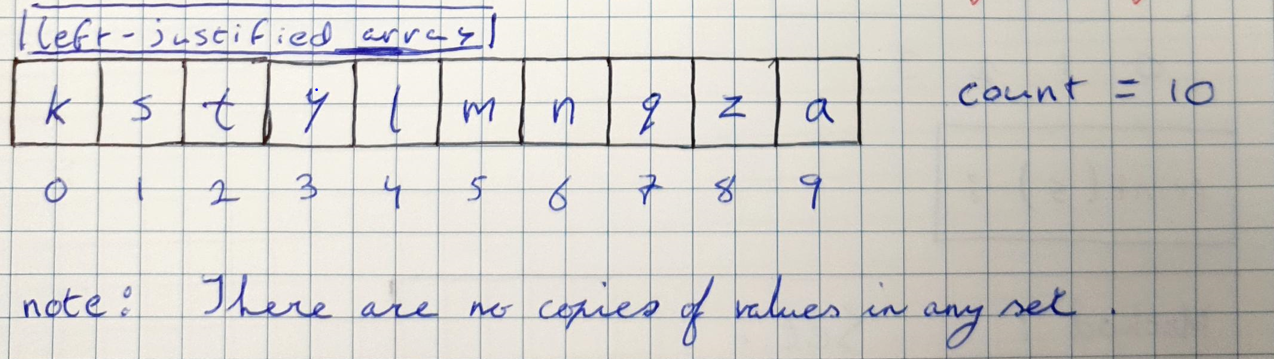 left-justified array
k s t y l m n q z a
count = 10
0 1 2 3 4 5 6 7 8 9
note: There are no copies of values in any set.